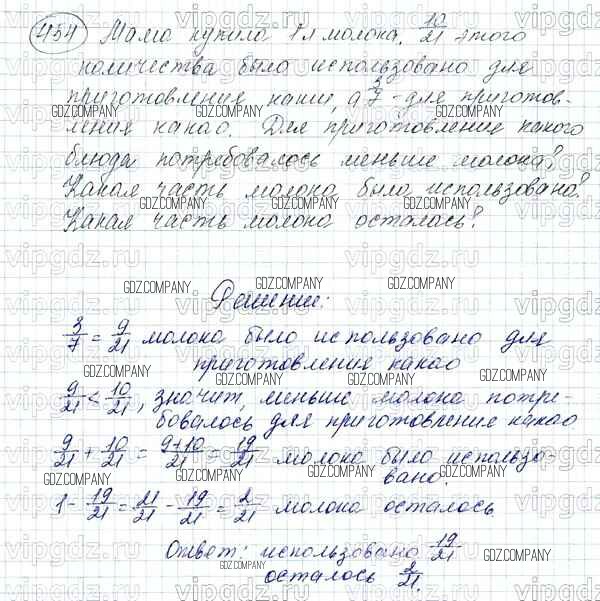 454 Мама купила 1 л молока. 10/21 этого
количества было использовано для
приготовления каши, а 3/7 - для приготов-
ления какао. Для приготовление какого
блюда потребовалось меньше молока?
Какая часть молока была использована?
Какая часть молока осталась?
Решение:
3/7 = 9/21 молока было использовано для
приготовления какао
9/21 < 10/21, значит, меньше молока потре-
бовалось для приготовление какао
9/21 + 10/21 = 9+10/21 = 19/21 молока было использо-
вано.
1 - 19/21 = 21/21 - 19/21 = 2/21 молока осталось.
Ответ: использовано 19/21
осталось 2/21.
vipgdz.ru
GDZ.COMPANY